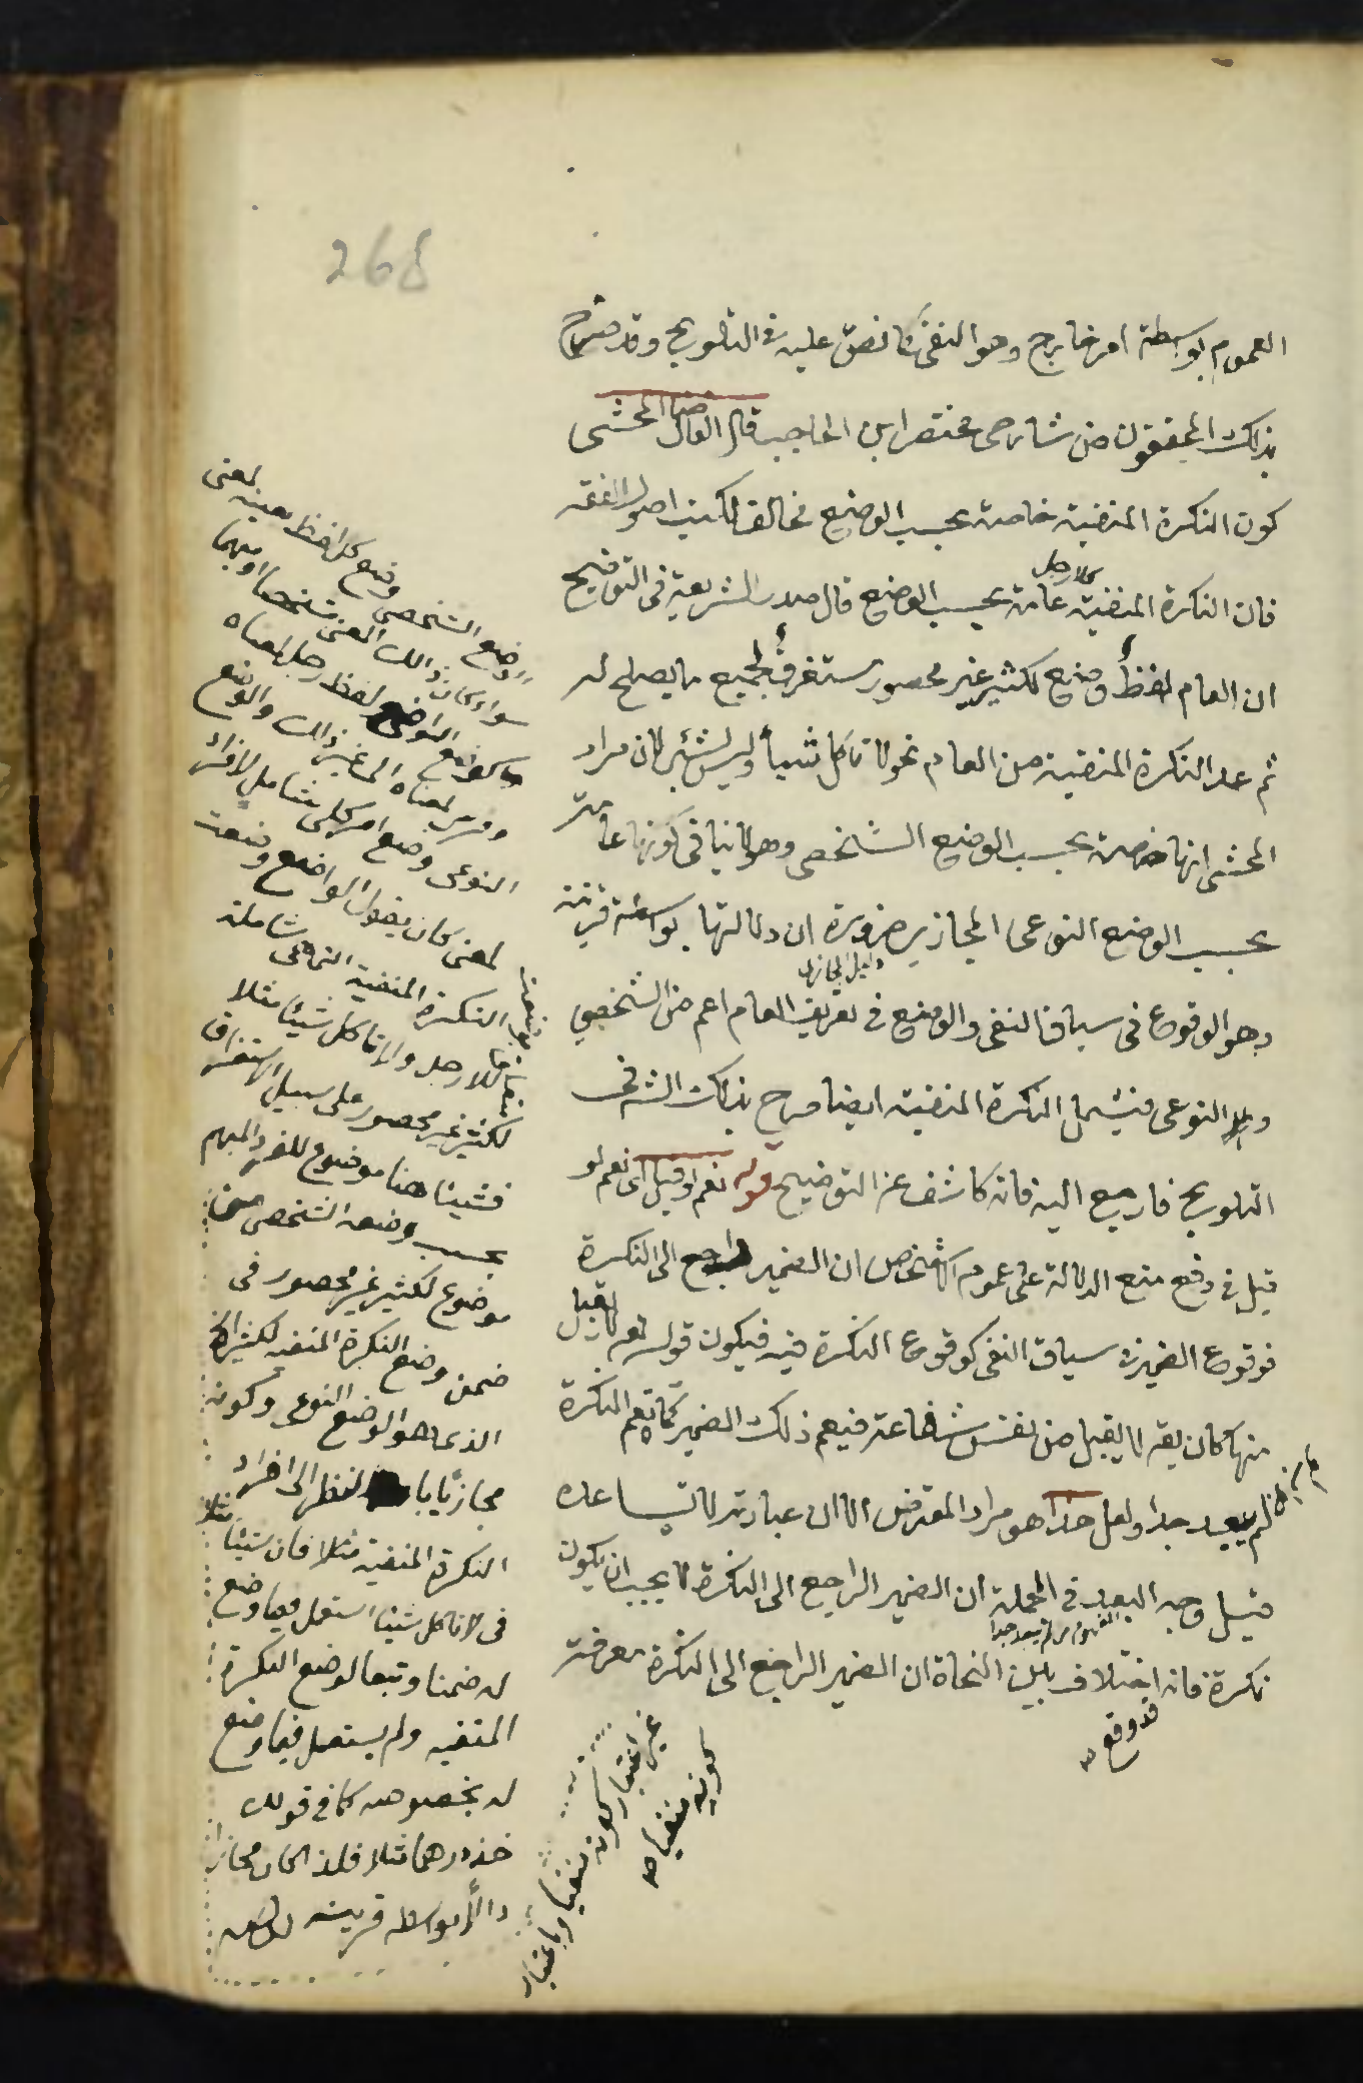 268
العموم بواسطة امر خارج وهو النفى كما نص عليه فى التلويح وقد صرح
بذلك المحققون من شارحى مختصر ابن الحاجب قال الفاضل المحشى
كون النكرة المنفية خاصة بحسب الوضع مخالف لكتب اصول الفقه
كلا رجل
فان النكرة المنفية عامة بحسب الوضع قال صدر الشريعة فى التوضيح
ان العام لفظ وضع لكثير غير محصور مستغرق لجميع ما يصلح له
ثم عد النكرة المنفية من العام نحو لا تأكل شيأ وليس بشئ لان مراد
المحشى انها خاصة بحسب الوضع الشخصى وهو لا ينافى كونها عامة
بحسب الوضع النوعى المجازى ضرورة ان دلالتها بواسطة قرينة
دليل المجازية
وهو الوقوع فى سياق النفى والوضع فى تعريف العام اعم من الشخصى
والنوعى فيشمل النكرة المنفية ايضا صرح بذلك الش فى
التلويح فارجع اليه فانه كاشف عن التوضيح قوله نعم لو قيل اى نعم لو
قيل فى دفع منع الدلالة على عموم الاشخاص ان الضمير راجع الى النكرة
فوقوع الضمير فى سياق النفى كوقوع النكرة فيه فيكون قوله تعم لا يقبل
منها كان يقه لا يقبل من نفس شفاعة فيعم ذلك الضمير كما تعم النكرة
لم يبعد جدا ولعل هذا هو مراد المعترض الا ان عبارته لا تساعده
قيل وجه البعد فى الجملة ان الضمير الراجع الى النكرة لا يجب ان يكون
المفهوم من لم يبعد جدا
نكرة فانه اختلاف بين النحاة ان الضمير الراجع الى النكرة معرفة
قد وقع
الوضع الشخصى وضع كل لفظ بعينه لمعنى
سواء كان ذلك المعنى مشخصا او مبهما
كوضع الواضع لفظ رجل لمعناه
وفرس لمعناه الى غير ذلك والوضع
النوعى وضع امر كلى شامل لافراد
لمعنى كان يقول الواضع وضعت
النكرة المنفية التى هى شاملة
للا رجل ولا تأكل شيئا مثلا
لكثير غير محصور على سبيل الاستغراق
فشيئا هنا موضوع للفرد المبهم
بحسب وضعه الشخصى
موضوع لكثير غير محصور فى
ضمن وضع النكرة المنفية لكثير الخ
الذى هو الوضع النوعى وكونه
مجازيا بالنظر الى افراد
النكرة المنفية مثلا فان شيئا مثلا
فى لا تأكل شيئا استعمل فيما وضع
له ضمنا وتبعا لوضع النكرة
المنفية ولم يستعمل فيما وضع
له بخصوصه كما فى قولك
خذ درهما مثلا فلذا كان مجازا
دالا بواسطة قرينة
غير اعتبار كونه منفيا وباعتبار
كونه منفيا